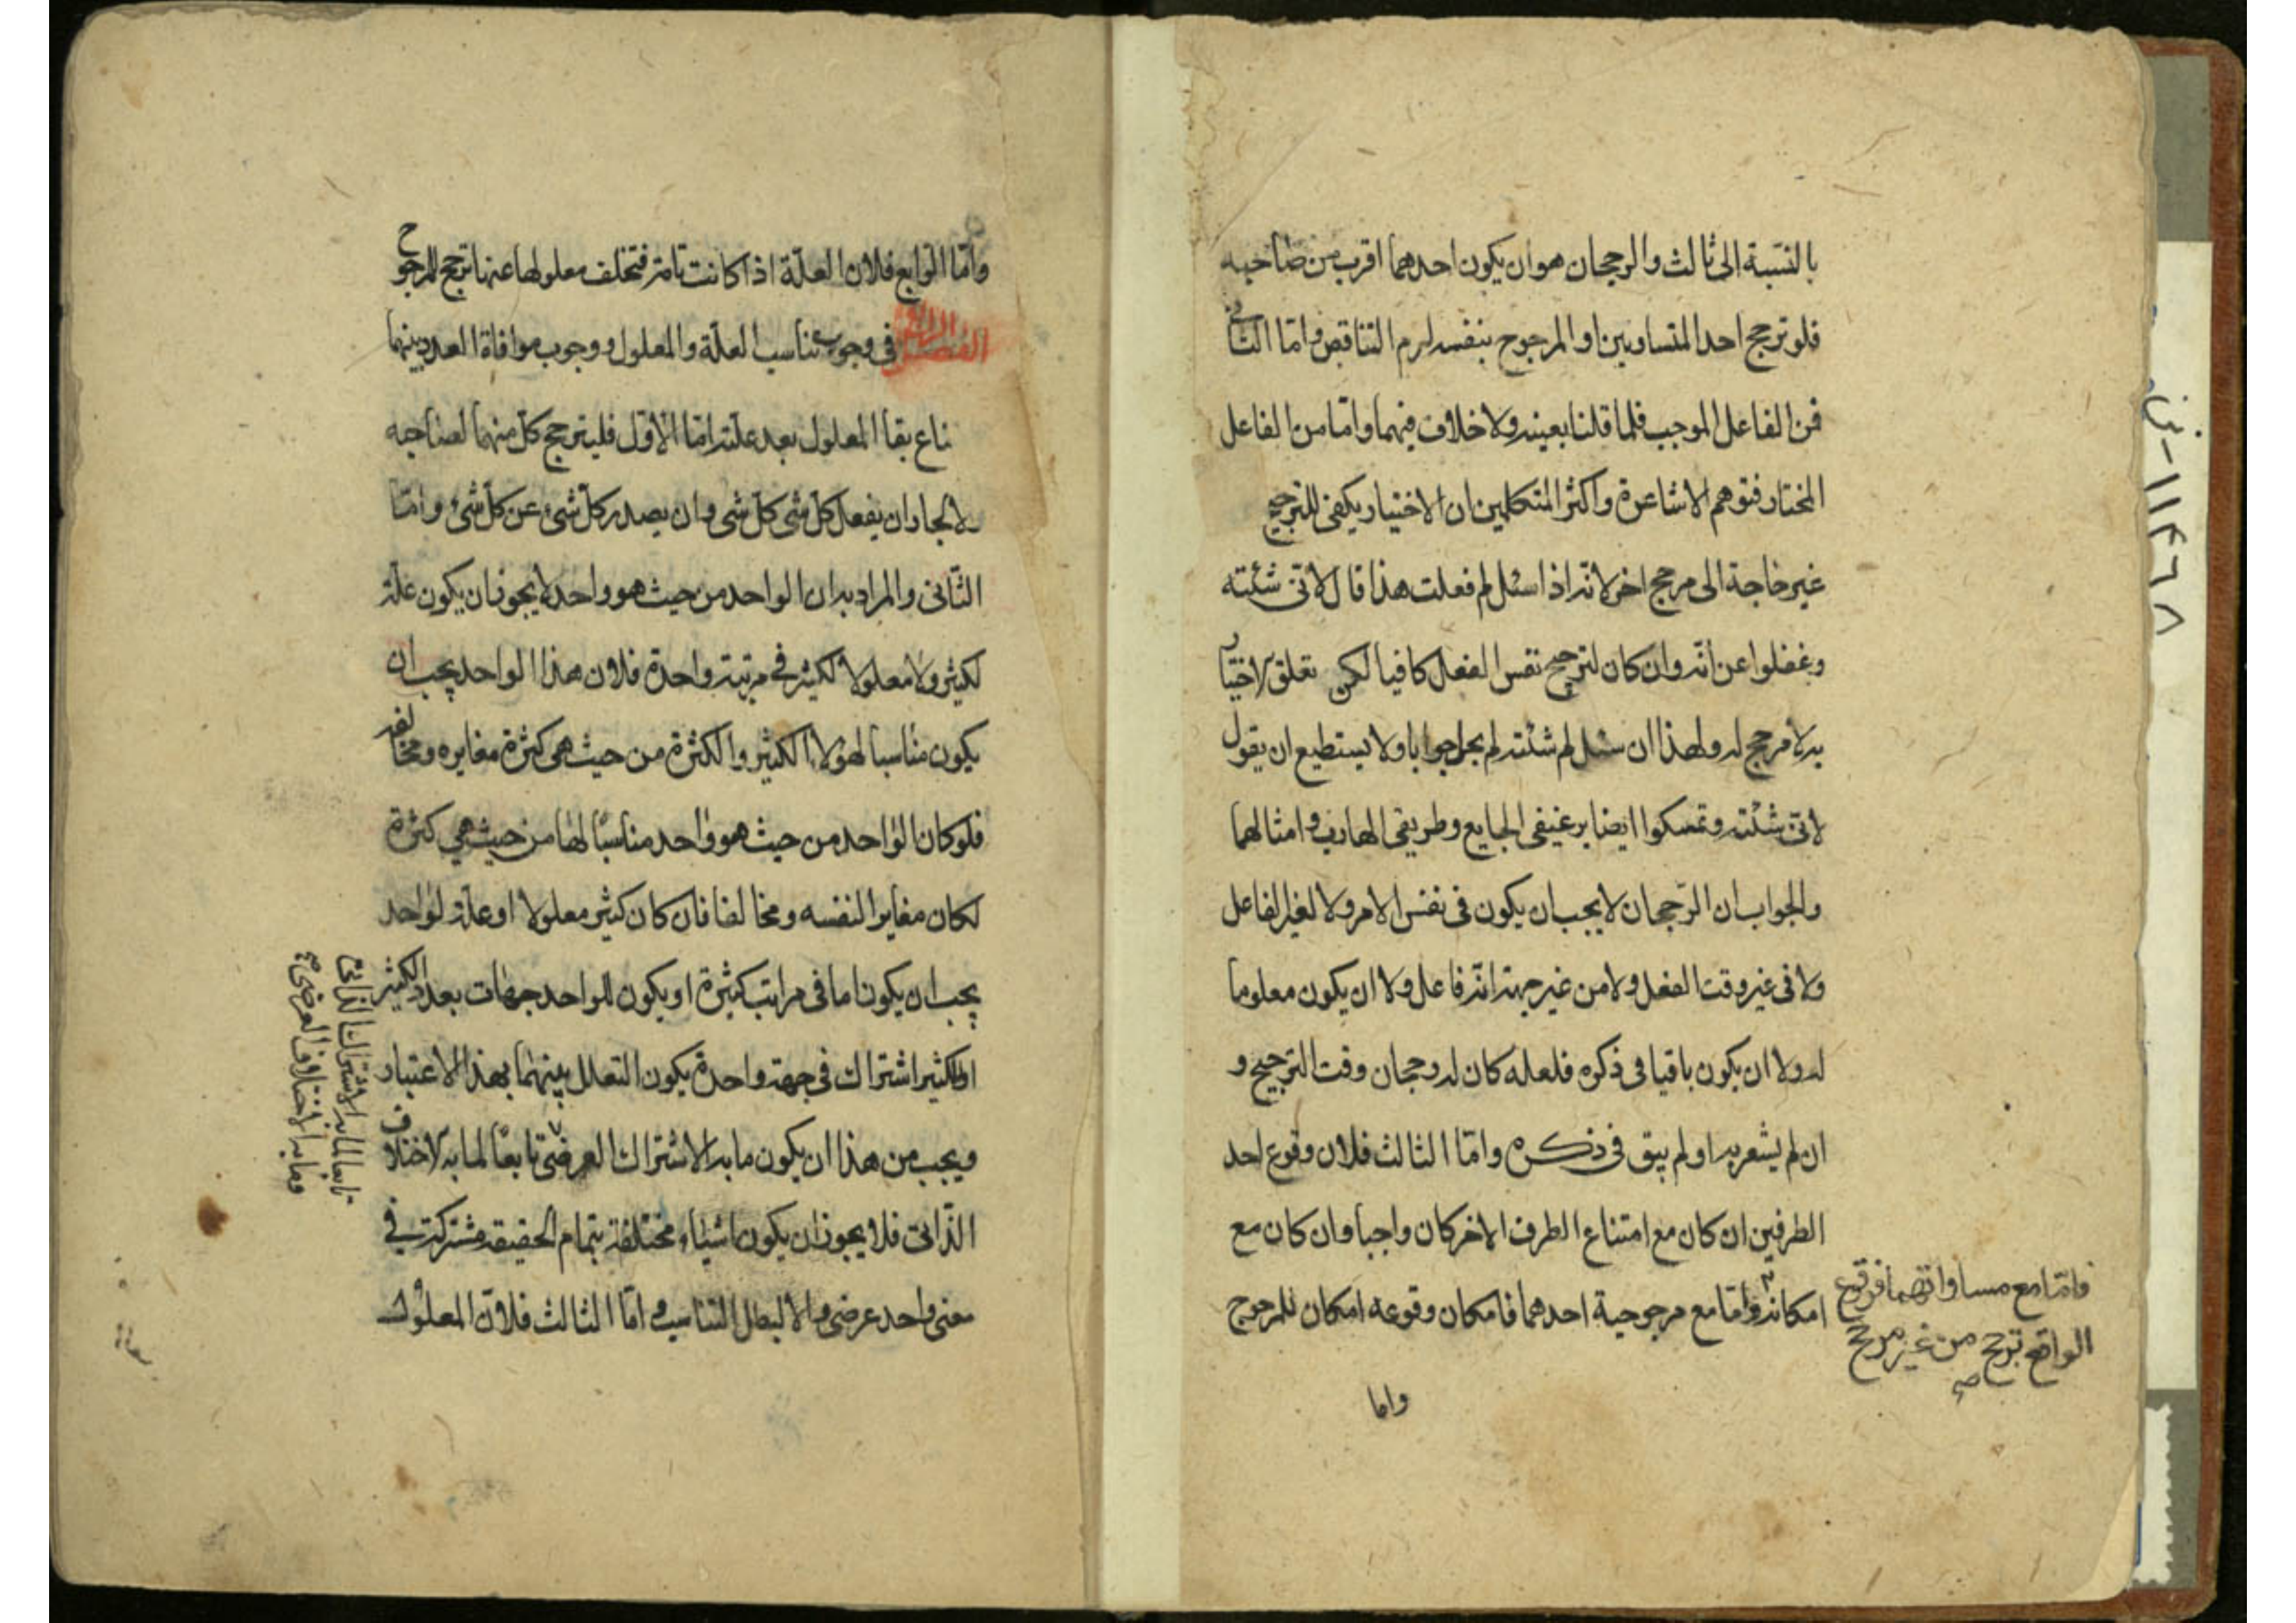 بالنسبة الى ثالث والرجحان هو ان يكون احدهما اقرب من صاحبه
فلو ترجح احد المتساويين او المرجوح بنفسه لزم التناقض واما الثاني
فمن الفاعل الموجب فلما قلنا بعينه ولا خلاف فيهما واما من الفاعل
المختار فتوهم الاشاعرة واكثر المتكلمين ان الاختيار يكفي للترجيح
غير حاجة الى مرجح اخر لانه اذا سئل لم فعلت هذا قال لاني شئته
وغفلوا عن انه وان كان لترجيح نفس الفعل كافيا لكن تعلق الاختيار
به لا مرجح له ولهذا ان سئل لم شئته لم يجد جوابا ولا يستطيع ان يقول
لاني شئته وتمسكوا ايضا برغيفي الجايع وطريقي الهارب وامثالهما
والجواب ان الرجحان لا يجب ان يكون في نفس الامر ولا لغير الفاعل
ولا في غير وقت الفعل ولا من غير جهة انه فاعل ولا ان يكون معلوما
له ولا ان يكون باقيا في ذكره فلعله كان له رجحان وقت الترجيح و
ان لم يشعر به او لم يبق في ذكره واما الثالث فلان وقوع احد
الطرفين ان كان مع امتناع الطرف الاخر كان واجبا وان كان مع
امكانه واما مع مرجوحية احدهما فامكان وقوعه امكان للمرجوح
فاما مع مساواتهما فوقوع
الواقع ترجح من غير مرجح
صح
واما
١١٤٦٨
واما الرابع فلان العلة اذا كانت تامة فتخلف معلولها عنها ترجح للمرجوح
الفصل الرابع في وجوب تناسب العلة والمعلول ووجوب موافاة العدد بينهما
بقا المعلول بعد علته اما الاول فليترجح كل منهما لصاحبه
لجاز ان يفعل كل شئ كل شئ وان يصدر كل شئ عن كل شئ واما
الثاني والمراد به ان الواحد من حيث هو واحد لا يجوز ان يكون علة
لكثير ولا معلولا لكثير في مرتبة واحدة فلان هذا الواحد يجب ان
يكون مناسبا لهؤلاء الكثير والكثرة من حيث هي كثرة مغايره ومخالفه
فلو كان الواحد من حيث هو واحد مناسبا لها من حيث هي كثرة
لكان مغايرا لنفسه ومخالفا فان كان كثير معلولا او علة لواحد
يجب ان يكون اما في مراتب كثيرة او يكون للواحد جهات بعدد الكثير
او للكثير اشتراك في جهة واحدة يكون التعلل بينهما بهذا الاعتبار
ويجب من هذا ان يكون ما به الاشتراك العرضي تابعا لما به الاختلاف
الذاتي فلا يجوز ان يكون اشياء مختلفة بتمام الحقيقة مشتركة في
معنى واحد عرضي والا لبطل التناسب واما الثالث فلان المعلول
تابعا لما به الاشتراك الذاتي
وما به الاختلاف العرضي صح